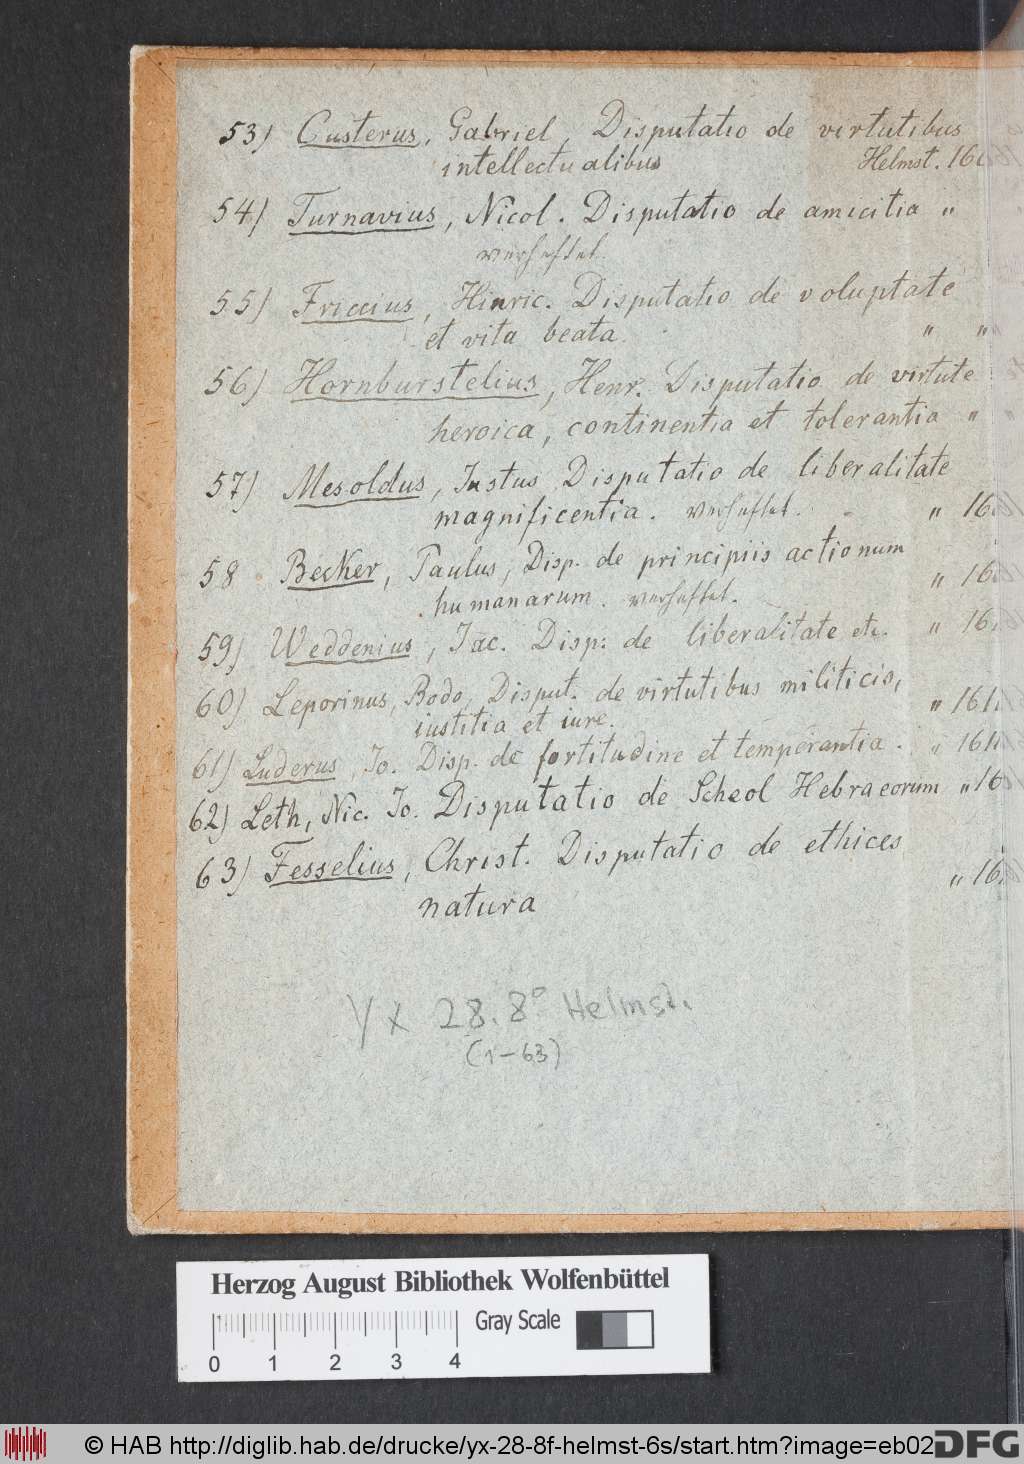 53) Custerus, Gabriel, Disputatio de virtutibus
intellectualibus Helmst.
54) Turnavius, Nicol. Disputatio de amicitia "
verheftet.
55) Friccius, Hinric. Disputatio de voluptate
et vita beata. " "
56) Hornburstelius, Henr. Disputatio de virtute
heroica, continentia et tolerantia "
57) Mesoldus, Justus Disputatio de liberalitate
magnificentia. verheftet. " 16
58 Becker, Paulus, Disp. de principiis actionum
humanarum. verheftet. " 16
59) Weddenius, Jac. Disp: de liberalitate etc. " 16
60) Leporinus, Bodo, Disput. de virtutibus militicis,
iustitia et iure. " 161
61) Luderus, Jo. Disp. de fortitudine et temperantia. " 161
62) Leth, Nic. Jo. Disputatio de Scheol Hebraeorum " 16
63) Fesselius, Christ. Disputatio de ethices
natura " 16
Yx 28. 8° Helmst.
(1-63)
Herzog August Bibliothek Wolfenbüttel
Gray Scale
0 1 2 3 4
© HAB http://diglib.hab.de/drucke/yx-28-8f-helmst-6s/start.htm?image=eb02
DFG